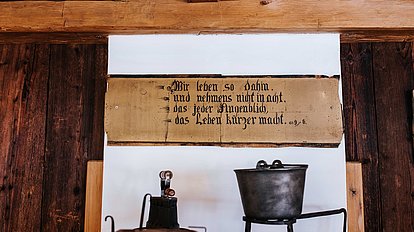 Wir leben so dahin.
und nehmens nicht in acht.
das jeder Augenblick,
das Leben kürzer macht.